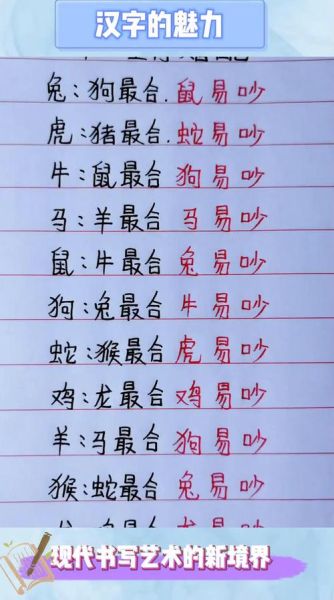 汉字的魅力
兔:狗最合.鼠易吵
虎:猪最合.蛇易吵
牛:鼠最合 狗易吵
马:羊最合 马易吵
鼠:牛最合 兔易吵
狗:兔最合 牛易吵
蛇:猴最合 虎易吵
鸡:龙最合 鸡易吵
羊:马最合 狗易吵
猴:蛇最合 兔易吵
现代书写艺术的新境界